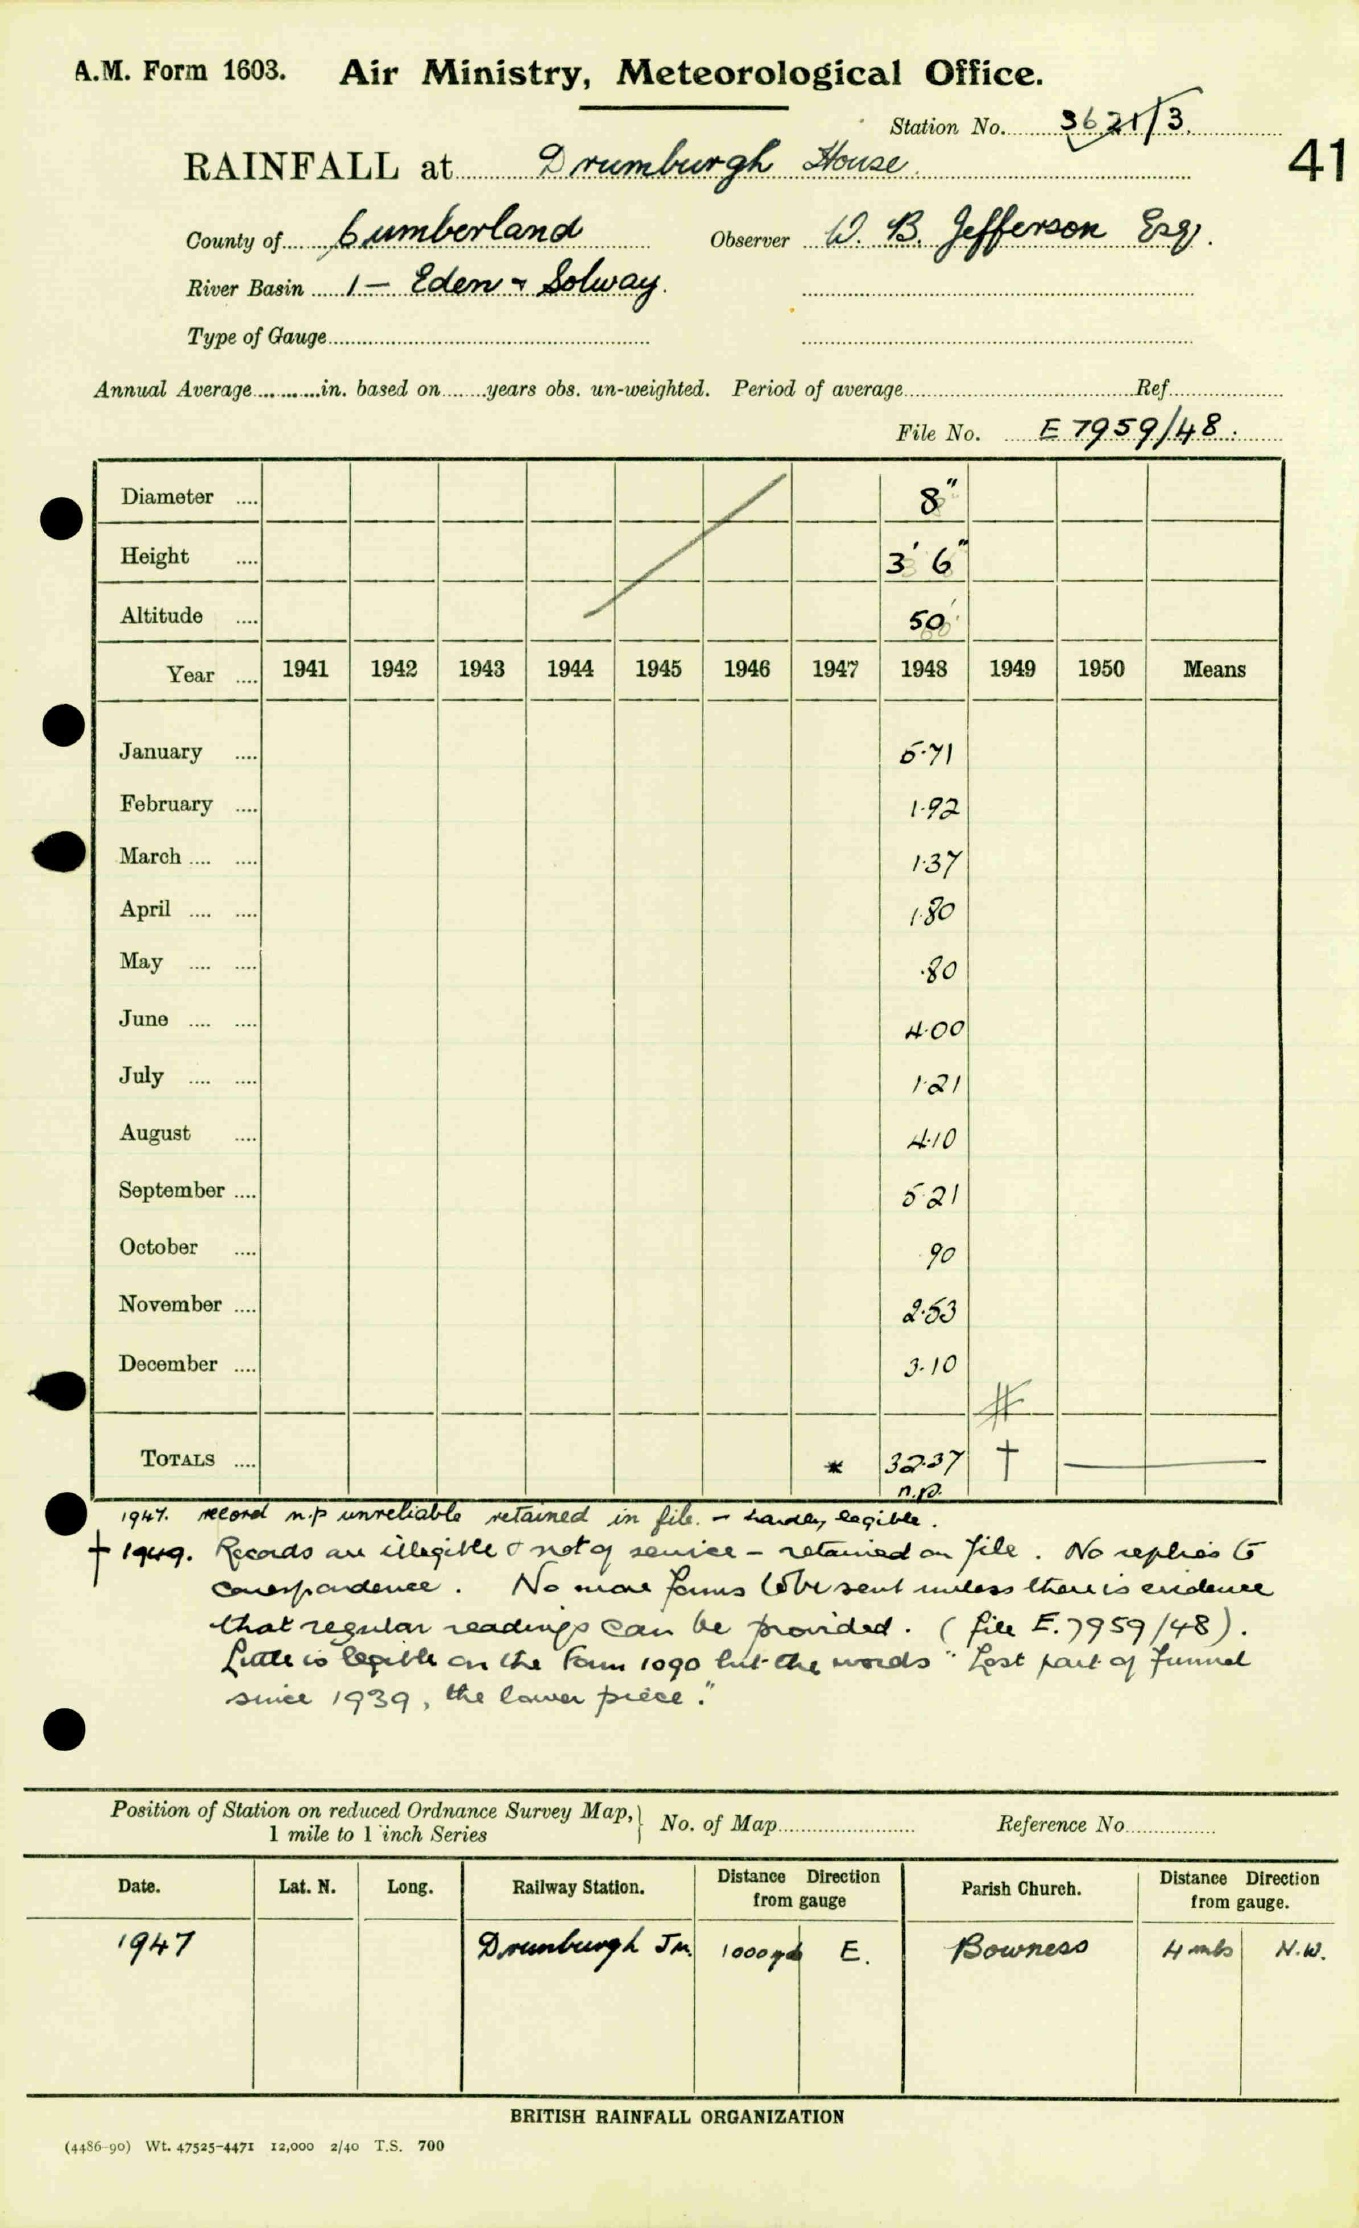 A.M. Form 1603. Air Ministry, Meteorological Office.
Station No. 3621/3
41
RAINFALL at Drumburgh House
County of Cumberland Observer W. B. Jefferson Esq.
River Basin 1 — Eden & Solway.
Type of Gauge
Annual Average in. based on years obs. un-weighted. Period of average Ref
File No. E 7959/48.
Diameter 8"
Height 3' 6"
Altitude 50'
Year 1941 1942 1943 1944 1945 1946 1947 1948 1949 1950 Means
January 5.71
February 1.92
March 1.37
April 1.80
May .80
June 4.00
July 1.21
August 4.10
September 5.21
October 90
November 2.53
December 3.10
#
TOTALS * 32.37 †
n.p.
1947. record n.p unreliable retained in file. – hardly legible.
† 1949. Records are illegible & not of service – retained on file. No replies to
correspondence. No more forms to be sent unless there is evidence
that regular readings can be provided. (file E.7959/48).
Little is legible on the Form 1090 but the words "Lost part of funnel
since 1939, the lower piece."
Position of Station on reduced Ordnance Survey Map, } No. of Map Reference No.
1 mile to 1 inch Series
Date. Lat. N. Long. Railway Station. Distance Direction from gauge Parish Church. Distance Direction from gauge.
1947 Drumburgh Jn. 1000 yds E. Bowness 4 mls N.W.
BRITISH RAINFALL ORGANIZATION
(4486-90) Wt. 47525-4471 12,000 2/40 T.S. 700